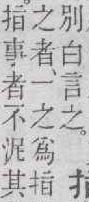 別白言之。
之者、一之爲指
指事者不泥其